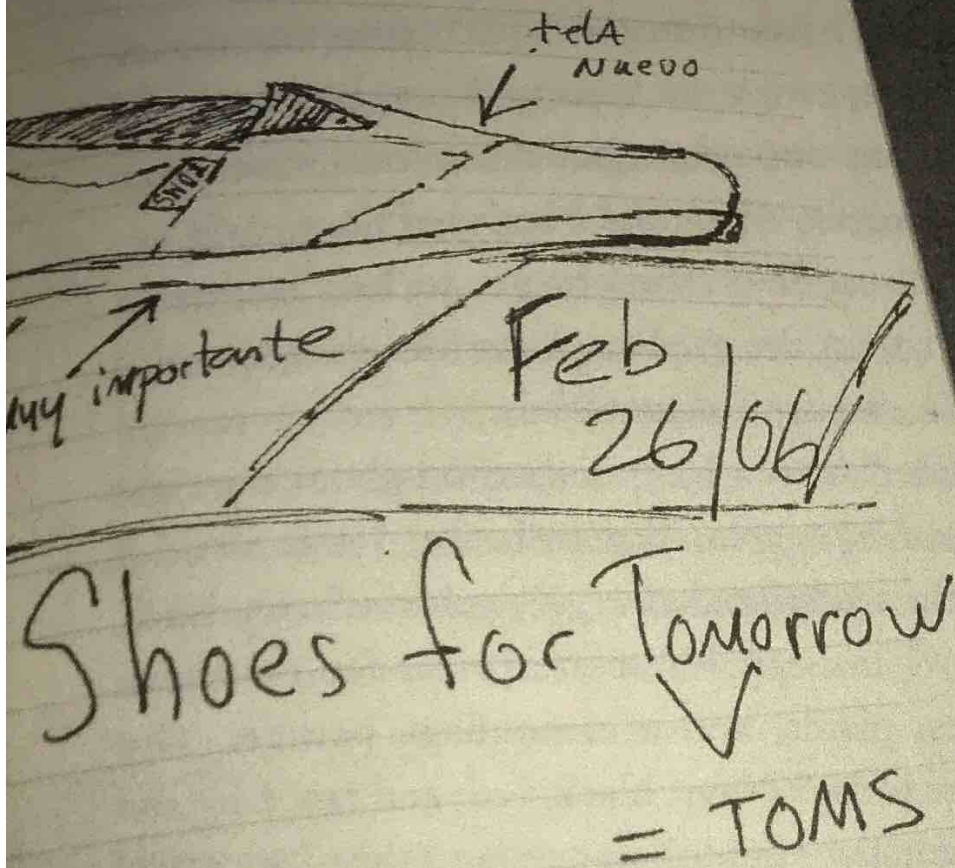 telA
Nuevo
TOMS
Muy importante
Feb
26/06
Shoes for Tomorrow
= TOMS